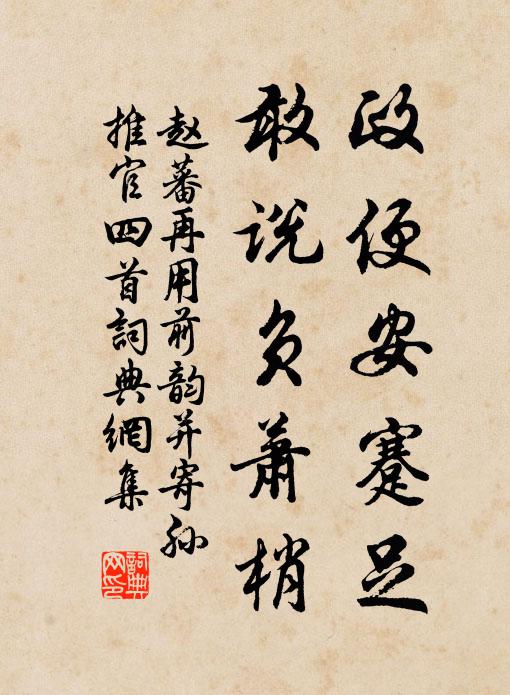 政便安蹇足
敢说负萧梢
赵蕃再用前韵并寄孙
推官四首詞典網集
詞典
网印